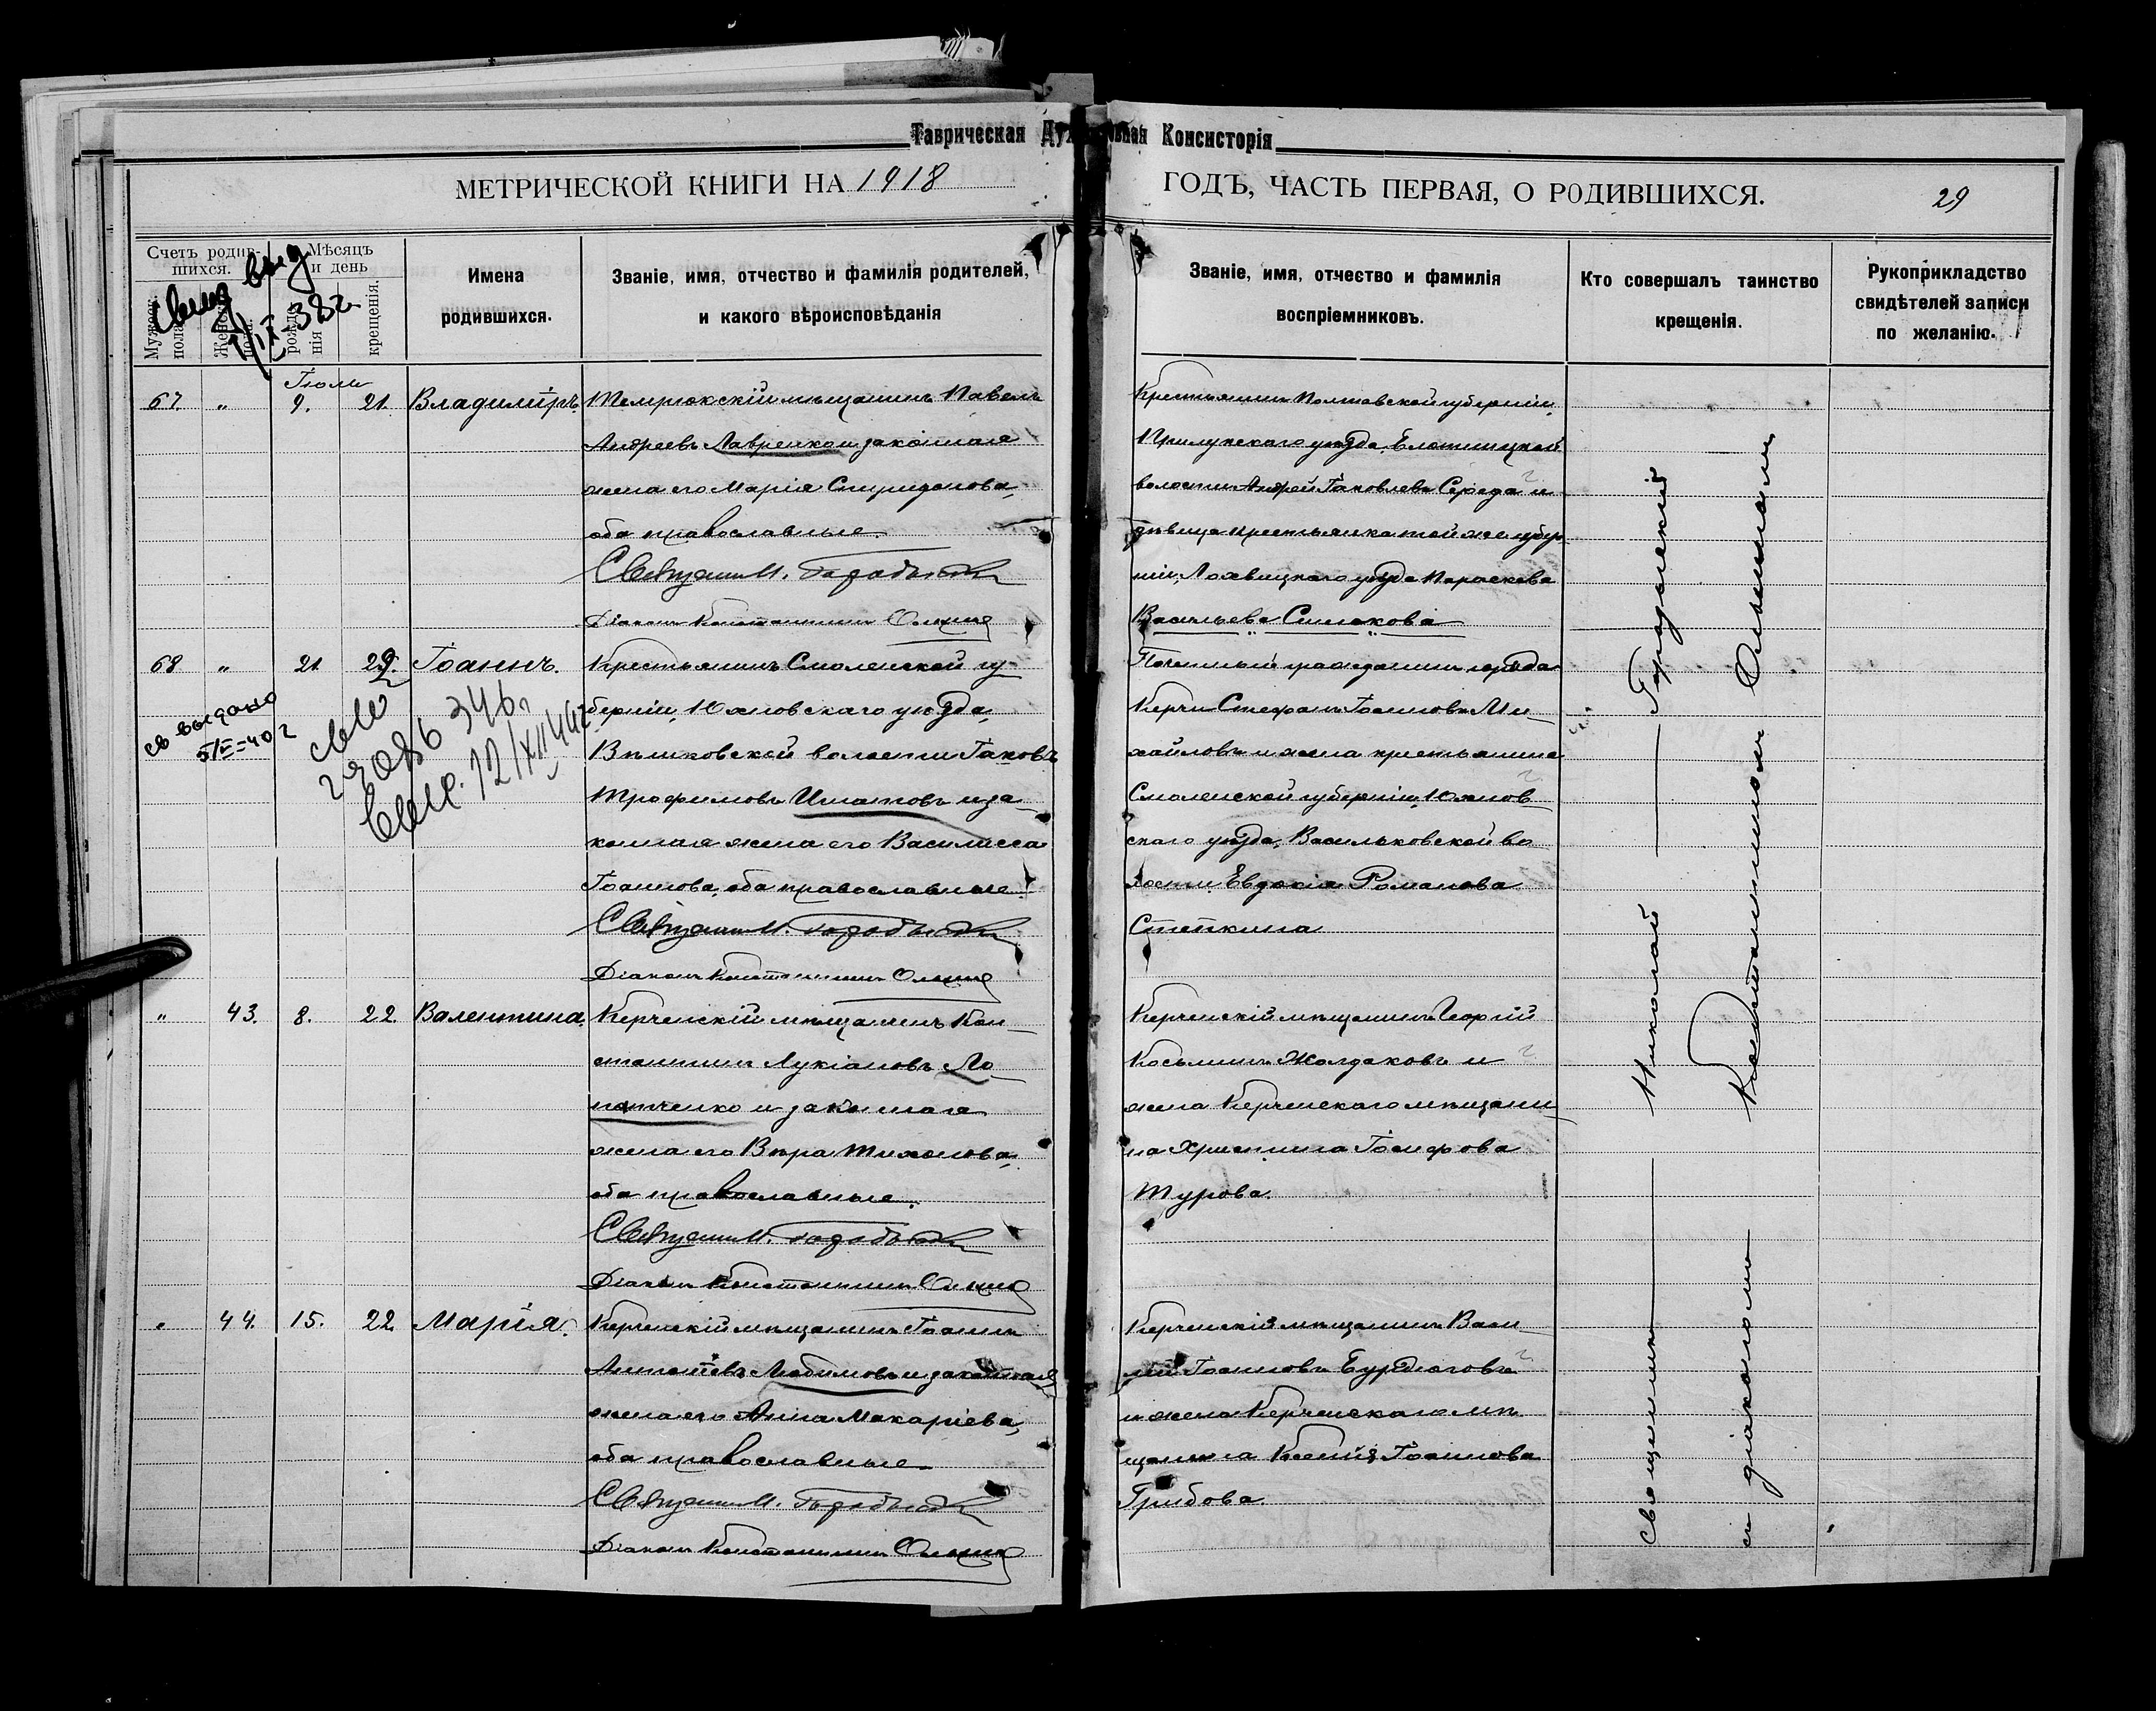 Таврическая Духовная Консисторія
МЕТРИЧЕСКОЙ КНИГИ НА 1918 ГОДЪ, ЧАСТЬ ПЕРВАЯ, О РОДИВШИХСЯ.
29
Счетъ родив-
шихся.
Мужеск.
пола.
Женска
пола.
Мѣсяцъ
и день
рожде-
нія
крещенія.
Имена
родившихся.
Званіе, имя, отчество и фамилія родителей,
и какого вѣроисповѣданія
Званіе, имя, отчество и фамилія
воспріемниковъ.
Кто совершалъ таинство
крещенія.
Рукоприкладство
свидѣтелей записи
по желанію.
Іюли
67. " 9. 21. Владиміръ Темрюкскій мѣщанинъ Павелъ
Андреевъ Лавренко и законная
жена его Марія Спиридонова,
оба православные.
Священ. Н. Городыскій
Діаконъ Константинъ
Крестьянинъ Полтавской губерніи,
Прилукскаго уѣзда,
волости Андрей Іаковлевъ Середа и
дѣвица крестьянка той же губер-
ніи, Лохвицкаго уѣзда Параскева
Васильева Симакова
68 " 21 29. Іоаннъ. Крестьянинъ Смоленской гу-
берніи, Юхновскаго уѣзда,
волости Іаковъ
Трофимовъ Игнатовъ и за-
конная жена его Василисса
Іоаннова, оба православные.
Священ. Н. Городыскій
Діаконъ Константинъ
св выдано
5/II=40 г
Почетный гражданинъ города
Керчи Стефанъ Іоанновъ Ми-
хайловъ и жена крестьянина
Смоленской губерніи, Юхнов-
скаго уѣзда, Васильковской во
лости Евдокія Романова
Степкина
" 43. 8. 22. Валентина. Керченскій мѣщанинъ Кон-
стантинъ Лукіановъ Ло-
патченко и законная
жена его Вѣра Тихонова,
оба православные.
Священ. Н. Городыскій
Діаконъ Константинъ
Керченскій мѣщанинъ Георгій
Косьминъ Жолдаковъ и
жена Керченскаго мѣщани-
на Христина Іосифова
Турова.
" 44. 15. 22 Марія. Керченскій мѣщанинъ Іоаннъ
Любимовъ и законная
жена его Анна Макаріева,
оба православные.
Священ. Н. Городыскій
Діаконъ Константинъ
Керченскій мѣщанинъ Васи-
лій Іоанновъ Бурдюговъ
и жена Керченскаго мѣ-
щанина Ксенія Іоаннова
Грибова.
Священникъ — Николай — Городыскій
съ діакономъ Константиномъ